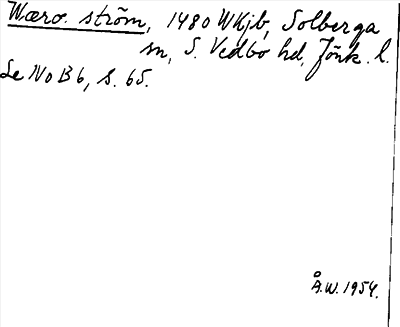 Wæro. ström, 1480 WKjb, Solberga
sn, S. Vedbo hd, Jönk. l.
Se NoB 6, s. 65.
Å.W. 1954.